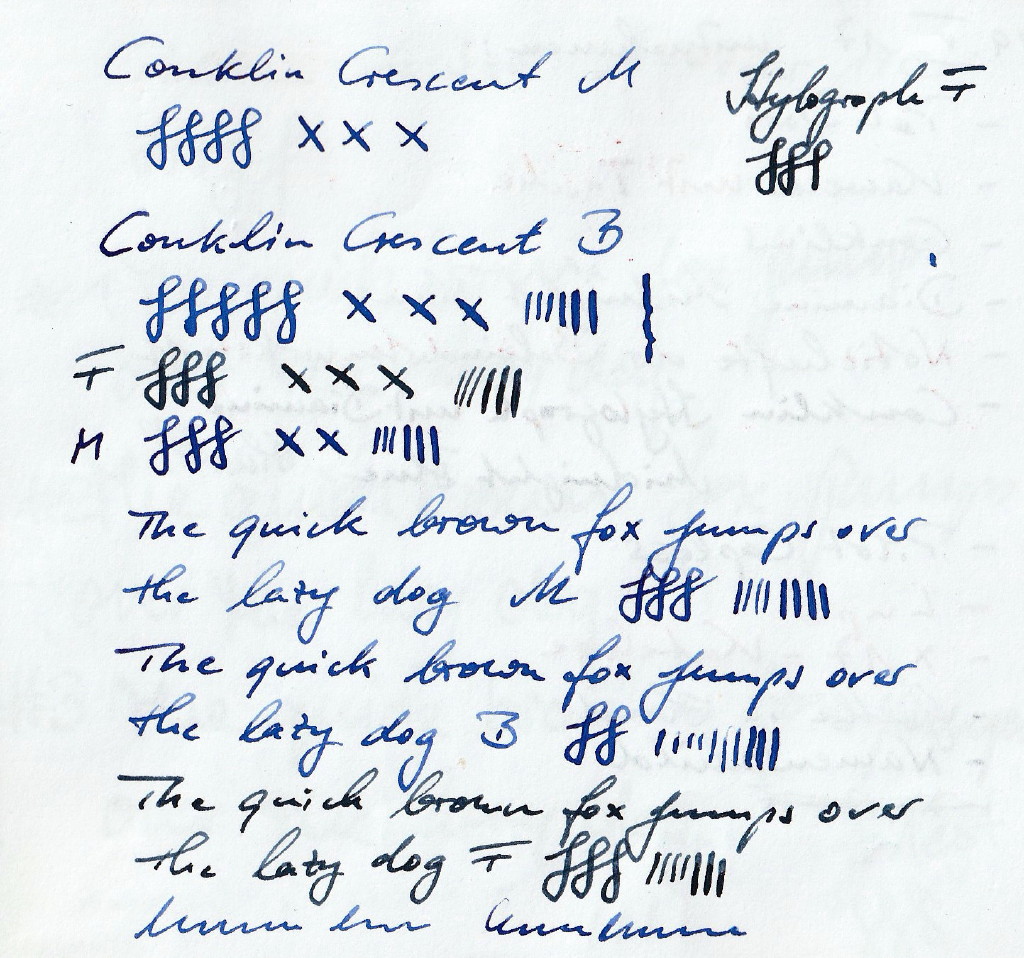 Conklin Crescent M
Hylograph F
ffff x x x
fff
Conklin Crescent B
fffff x x x
F fff x x x
M fff x x
The quick brown fox jumps over
the lazy dog M fff
The quick brown fox jumps over
the lazy dog B ff
The quick brown fox jumps over
the lazy dog F fff